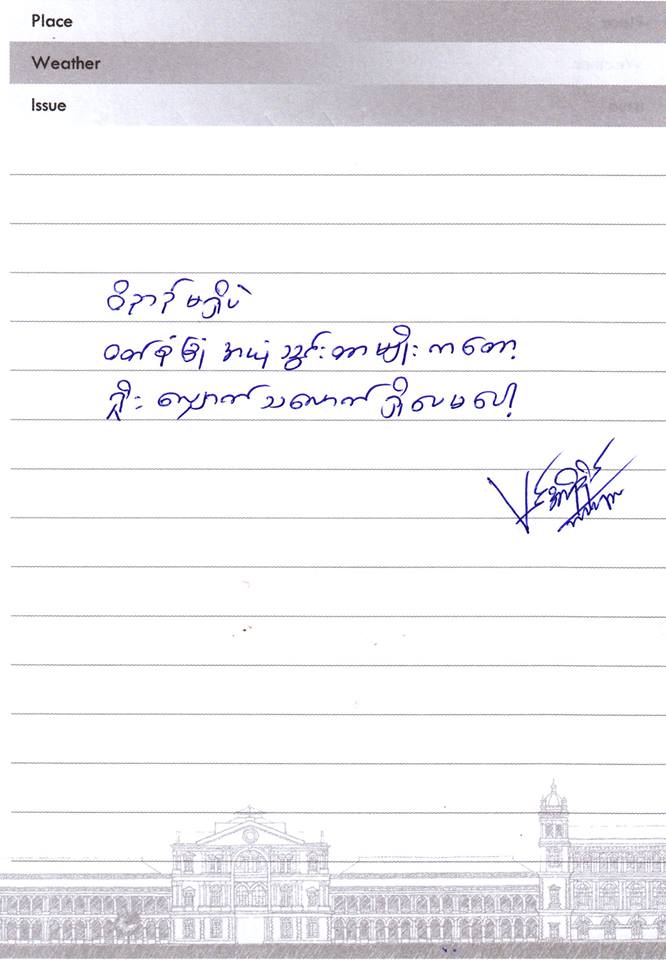 Place
Weather
Issue
ဝိညာဉ်မရှိပဲ
ဝတ်စုံခြုံ အယုံသွင်းတာမျိုးကတော့
ရှိုးလျှောက်သလောက်ရှိလေမလေါ့